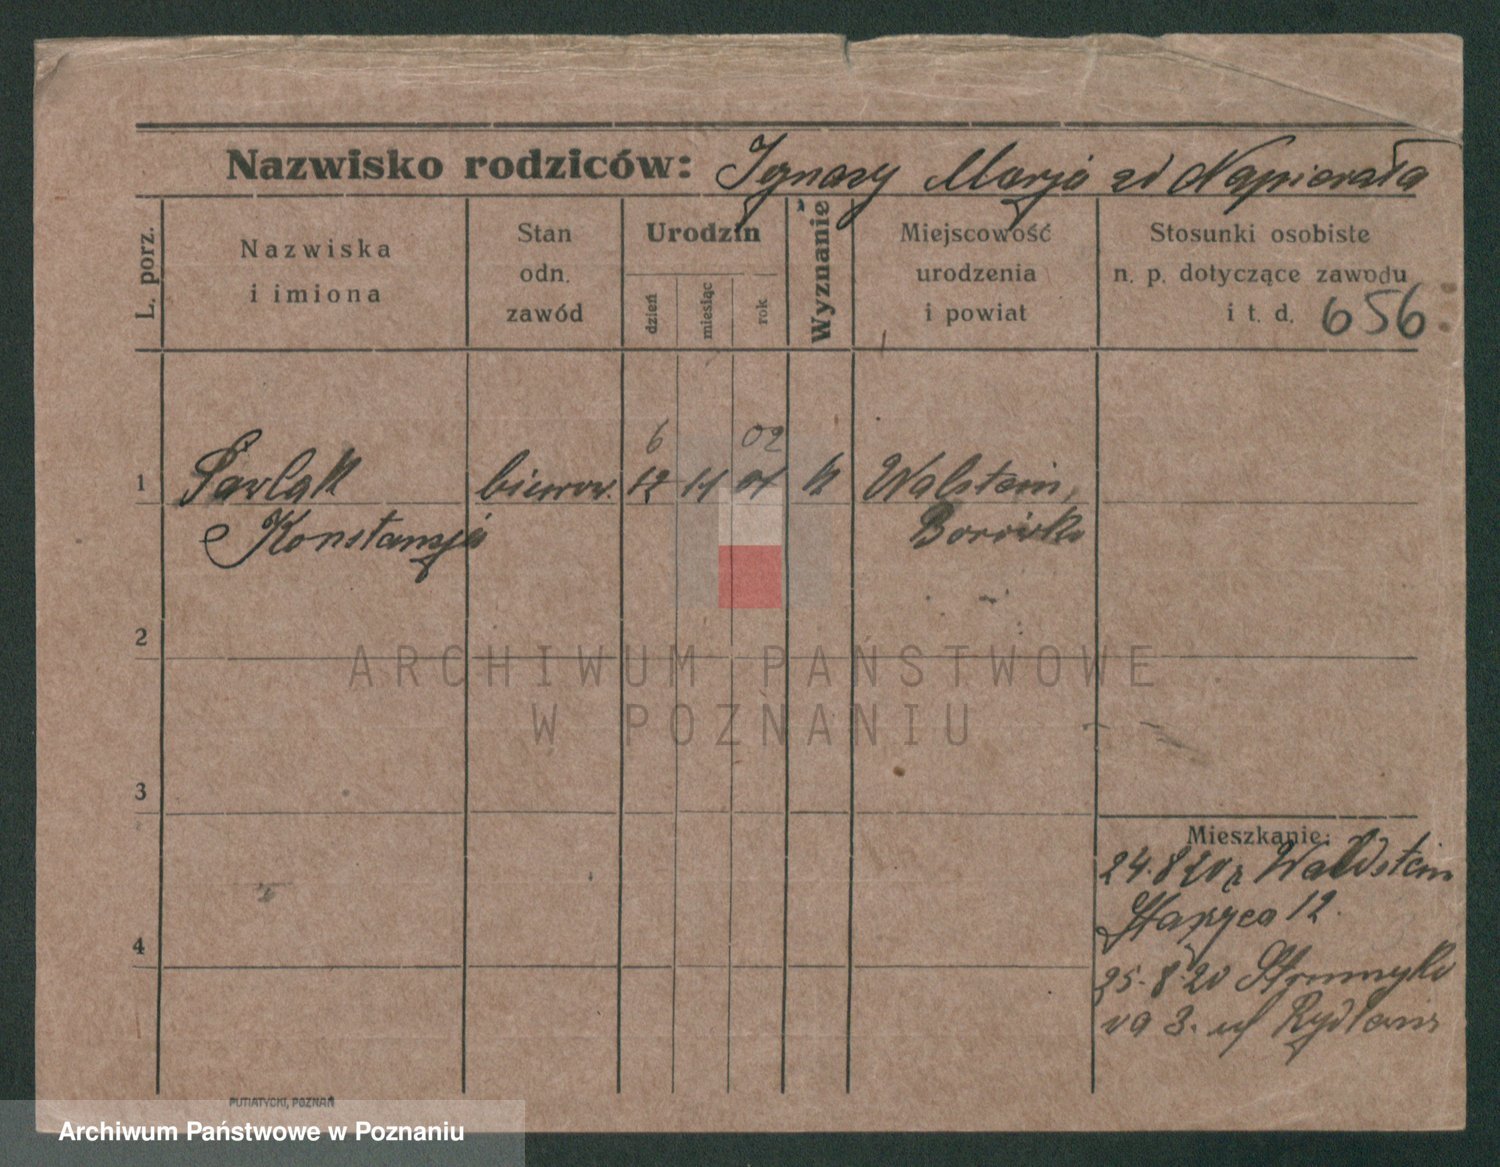 Nazwisko rodziców: Ignacy Marja zd Napierała
L. porz.
Nazwiska
i imiona
Stan
odn.
zawód
Urodzin
dzień
miesiąc
rok
Wyznanie
Miejscowość
urodzenia
i powiat
Stosunki osobiste
n. p. dotyczące zawodu
i t. d. 656
6 02
1 Pawlak 12 11 01 k Walstein,
Konstancja Borówko
2
3
4
Mieszkanie:
24.8.20 z Waldstein
12.
25.8.20 Strumyko
va 3. Rydlewis
ARCHIWUM PAŃSTWOWE
W POZNANIU
PUTIATYCKI, POZNAŃ
Archiwum Państwowe w Poznaniu